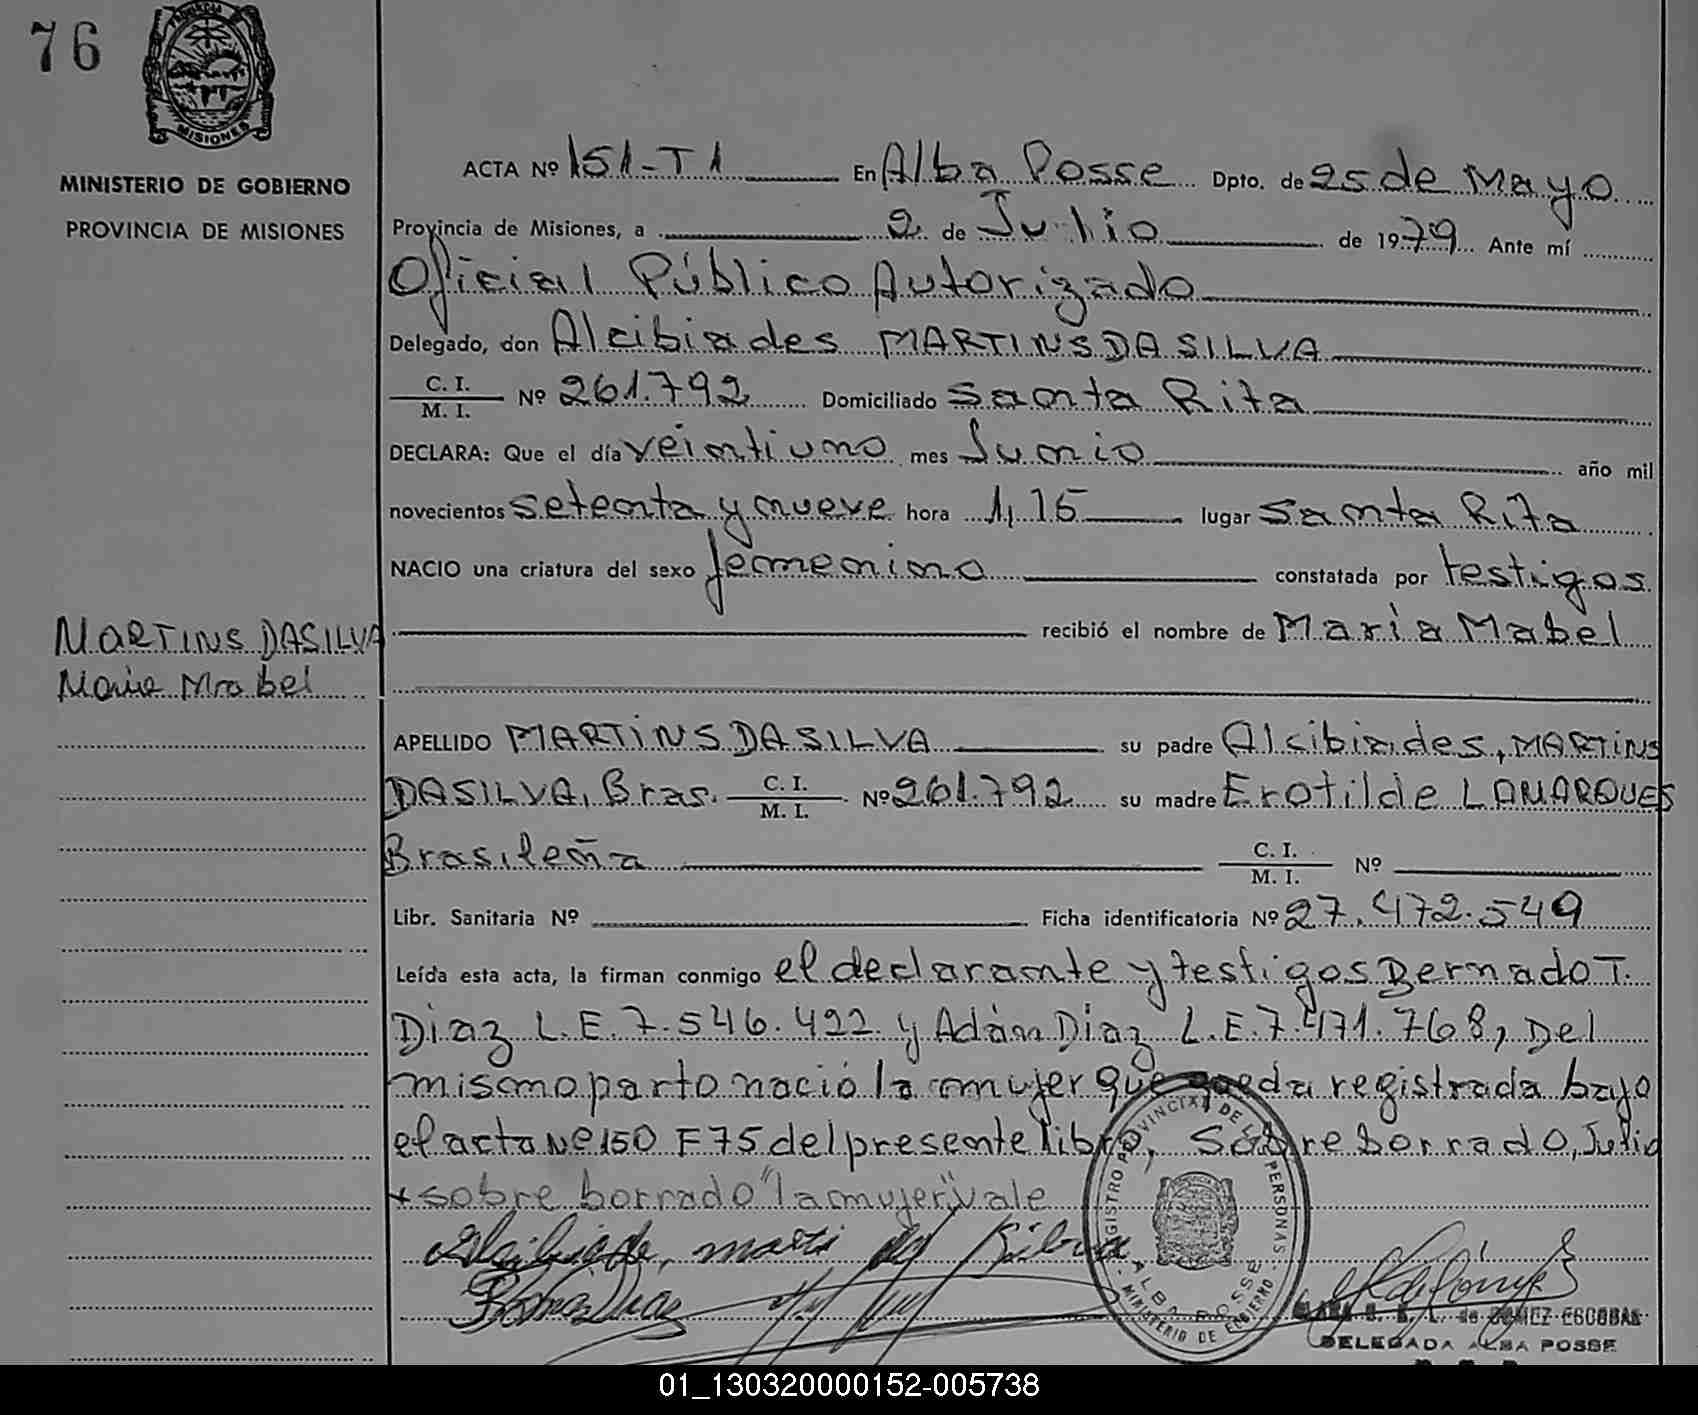 76
PROVINCIA
MISIONES
MINISTERIO DE GOBIERNO
PROVINCIA DE MISIONES
ACTA Nº 151-T1 En Alba Posse Dpto. de 25 de Mayo
Provincia de Misiones, a 2 de Julio de 1979 Ante mí
Oficial Público Autorizado
Delegado, don Alcibiades MARTINS DA SILVA
C. I.
M. I. Nº 261.792 Domiciliado Santa Rita
DECLARA: Que el día veintiuno mes Junio año mil
novecientos setenta y nueve hora 1,15 lugar Santa Rita
NACIO una criatura del sexo femenino constatada por testigos
MARTINS DASILVA recibió el nombre de Maria Mabel
Maria Mabel
APELLIDO MARTINS DA SILVA su padre Alcibiades, MARTINS
DASILVA, Bras. C. I.
M. I. Nº 261.792 su madre Erotilde LAMARQUES
Brasileña C. I.
M. I. Nº
Libr. Sanitaria Nº Ficha identificatoria Nº 27.472.549
Leída esta acta, la firman conmigo el declarante y testigos Bernado T.
Diaz L.E. 7.546.422 y Adán Diaz L.E. 7.471.768, Del
mismo parto nació la mujer que queda registrada bajo
el acta Nº 150 F 75 del presente libro, Sobre borrado, Julio
+ sobre borrado "la mujer" vale
REGISTRO PROVINCIAL DE LAS PERSONAS
ALBA POSSE
MINISTERIO DE GOBIERNO
de GOMEZ ESCOBAR
DELEGADA ALBA POSSE
01_130320000152-005738